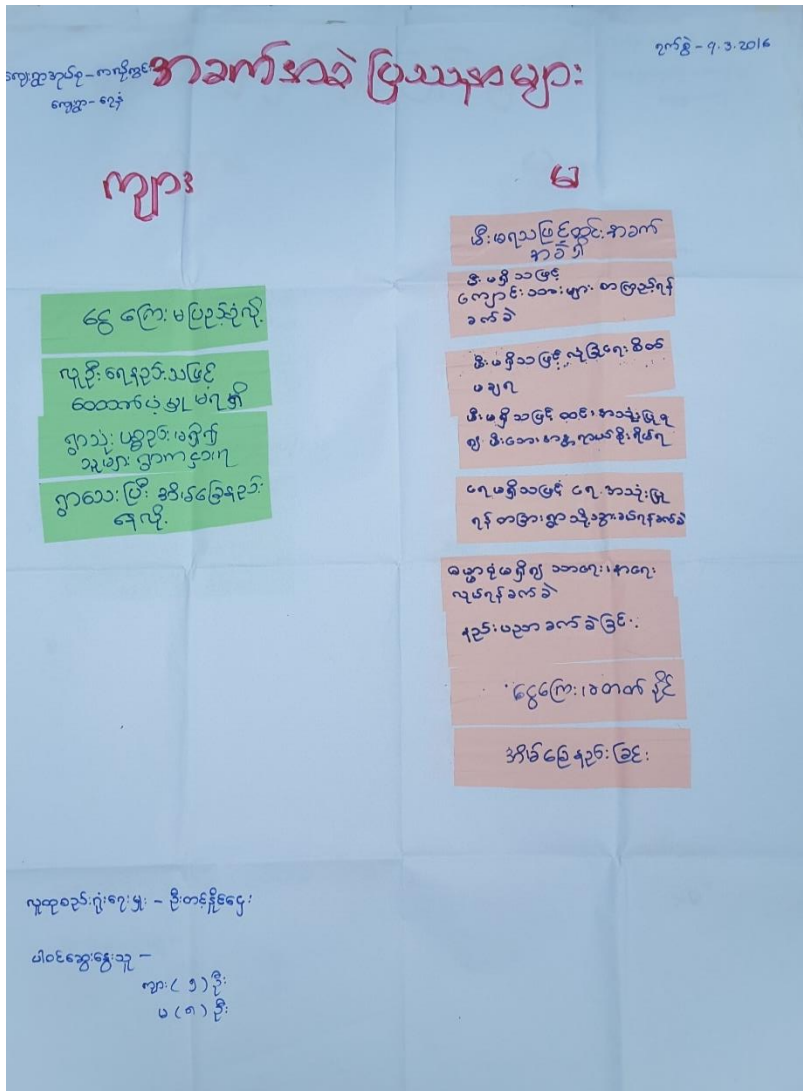 ရက်စွဲ - ၅.၃.2016
ကျေးရွာအုပ်စု -
ကျေးရွာ - ရေနံ
အခက်အခဲ ပြဿနာများ
ကျား
ငွေ ကြေး မပြည့်စုံလို့
လူဦး ရေနည်းသဖြင့်
ထောက်ပံ့မှု မရရှိ
ရွာသုံး ပစ္စည်း မရှိ၍
သူများ ရွာက ငှားရ
ရွာသေး ပြီး အိမ်ခြေနည်း
နေလို့
မ
မီးမရသဖြင့်တွင်း အခက်
အခဲ ရှိ
မီး မရှိ သဖြင့်
ကျောင်းသားများ စာကြည့်ရန်
ခက်ခဲ
မီးမရှိသဖြင့် လုံခြုံရေး စိတ်
မချရ
မီးမရှိ သဖြင့် ထင်း အသုံးပြုရ
၍ မီးဘေး အန္တရာယ်စိုးရိမ်ရ
ရေမရှိသဖြင့် ရေ အသုံးပြု
ရန် တခြားရွာသို့သွားခပ်ရန်ခက်ခဲ
ဓမ္မာရုံမရှိ၍ သာရေး၊နာရေး
လုပ်ရန်ခက်ခဲ
နည်းပညာ ခက်ခဲခြင်း
ငွေကြေး မတတ်နိုင်
အိမ်ခြေနည်းခြင်း
လူထုစည်းရုံးရေးမှူး - ဦးတင့်နိုင်ဌေး
ပါဝင်ဆွေးနွေးသူ -
ကျား ( ၅ ) ဦး
မ ( ၈ ) ဦး